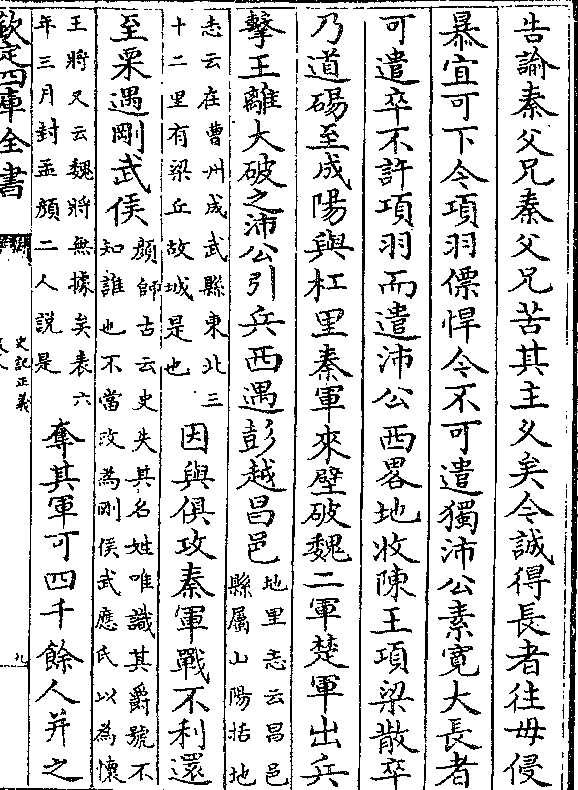 告諭秦父兄秦父兄苦其主乆矣今誠得長者往毋侵
暴宜可下今項羽僄悍今不可遣獨沛公素寛大長者
可遣卒不許項羽而遣沛公西畧地收陳王項梁散卒
乃道碭至成陽與杠里秦軍來壁破魏二軍楚軍出兵
擊王離大破之沛公引兵西遇彭越昌邑地里志云昌邑
縣屬山陽括地
志云在曹州成武縣東北三
十二里有梁丘故城是也因與俱攻秦軍戰不利還
至栗遇剛武侯顔師古云史失其名姓唯識其爵號不
知誰也不當改為剛侯武應氏以為懷
王將又云魏將無據矣表六
年三月封孟顔二人説是奪其軍可四千餘人并之
欽定四庫全書
史記正義
九